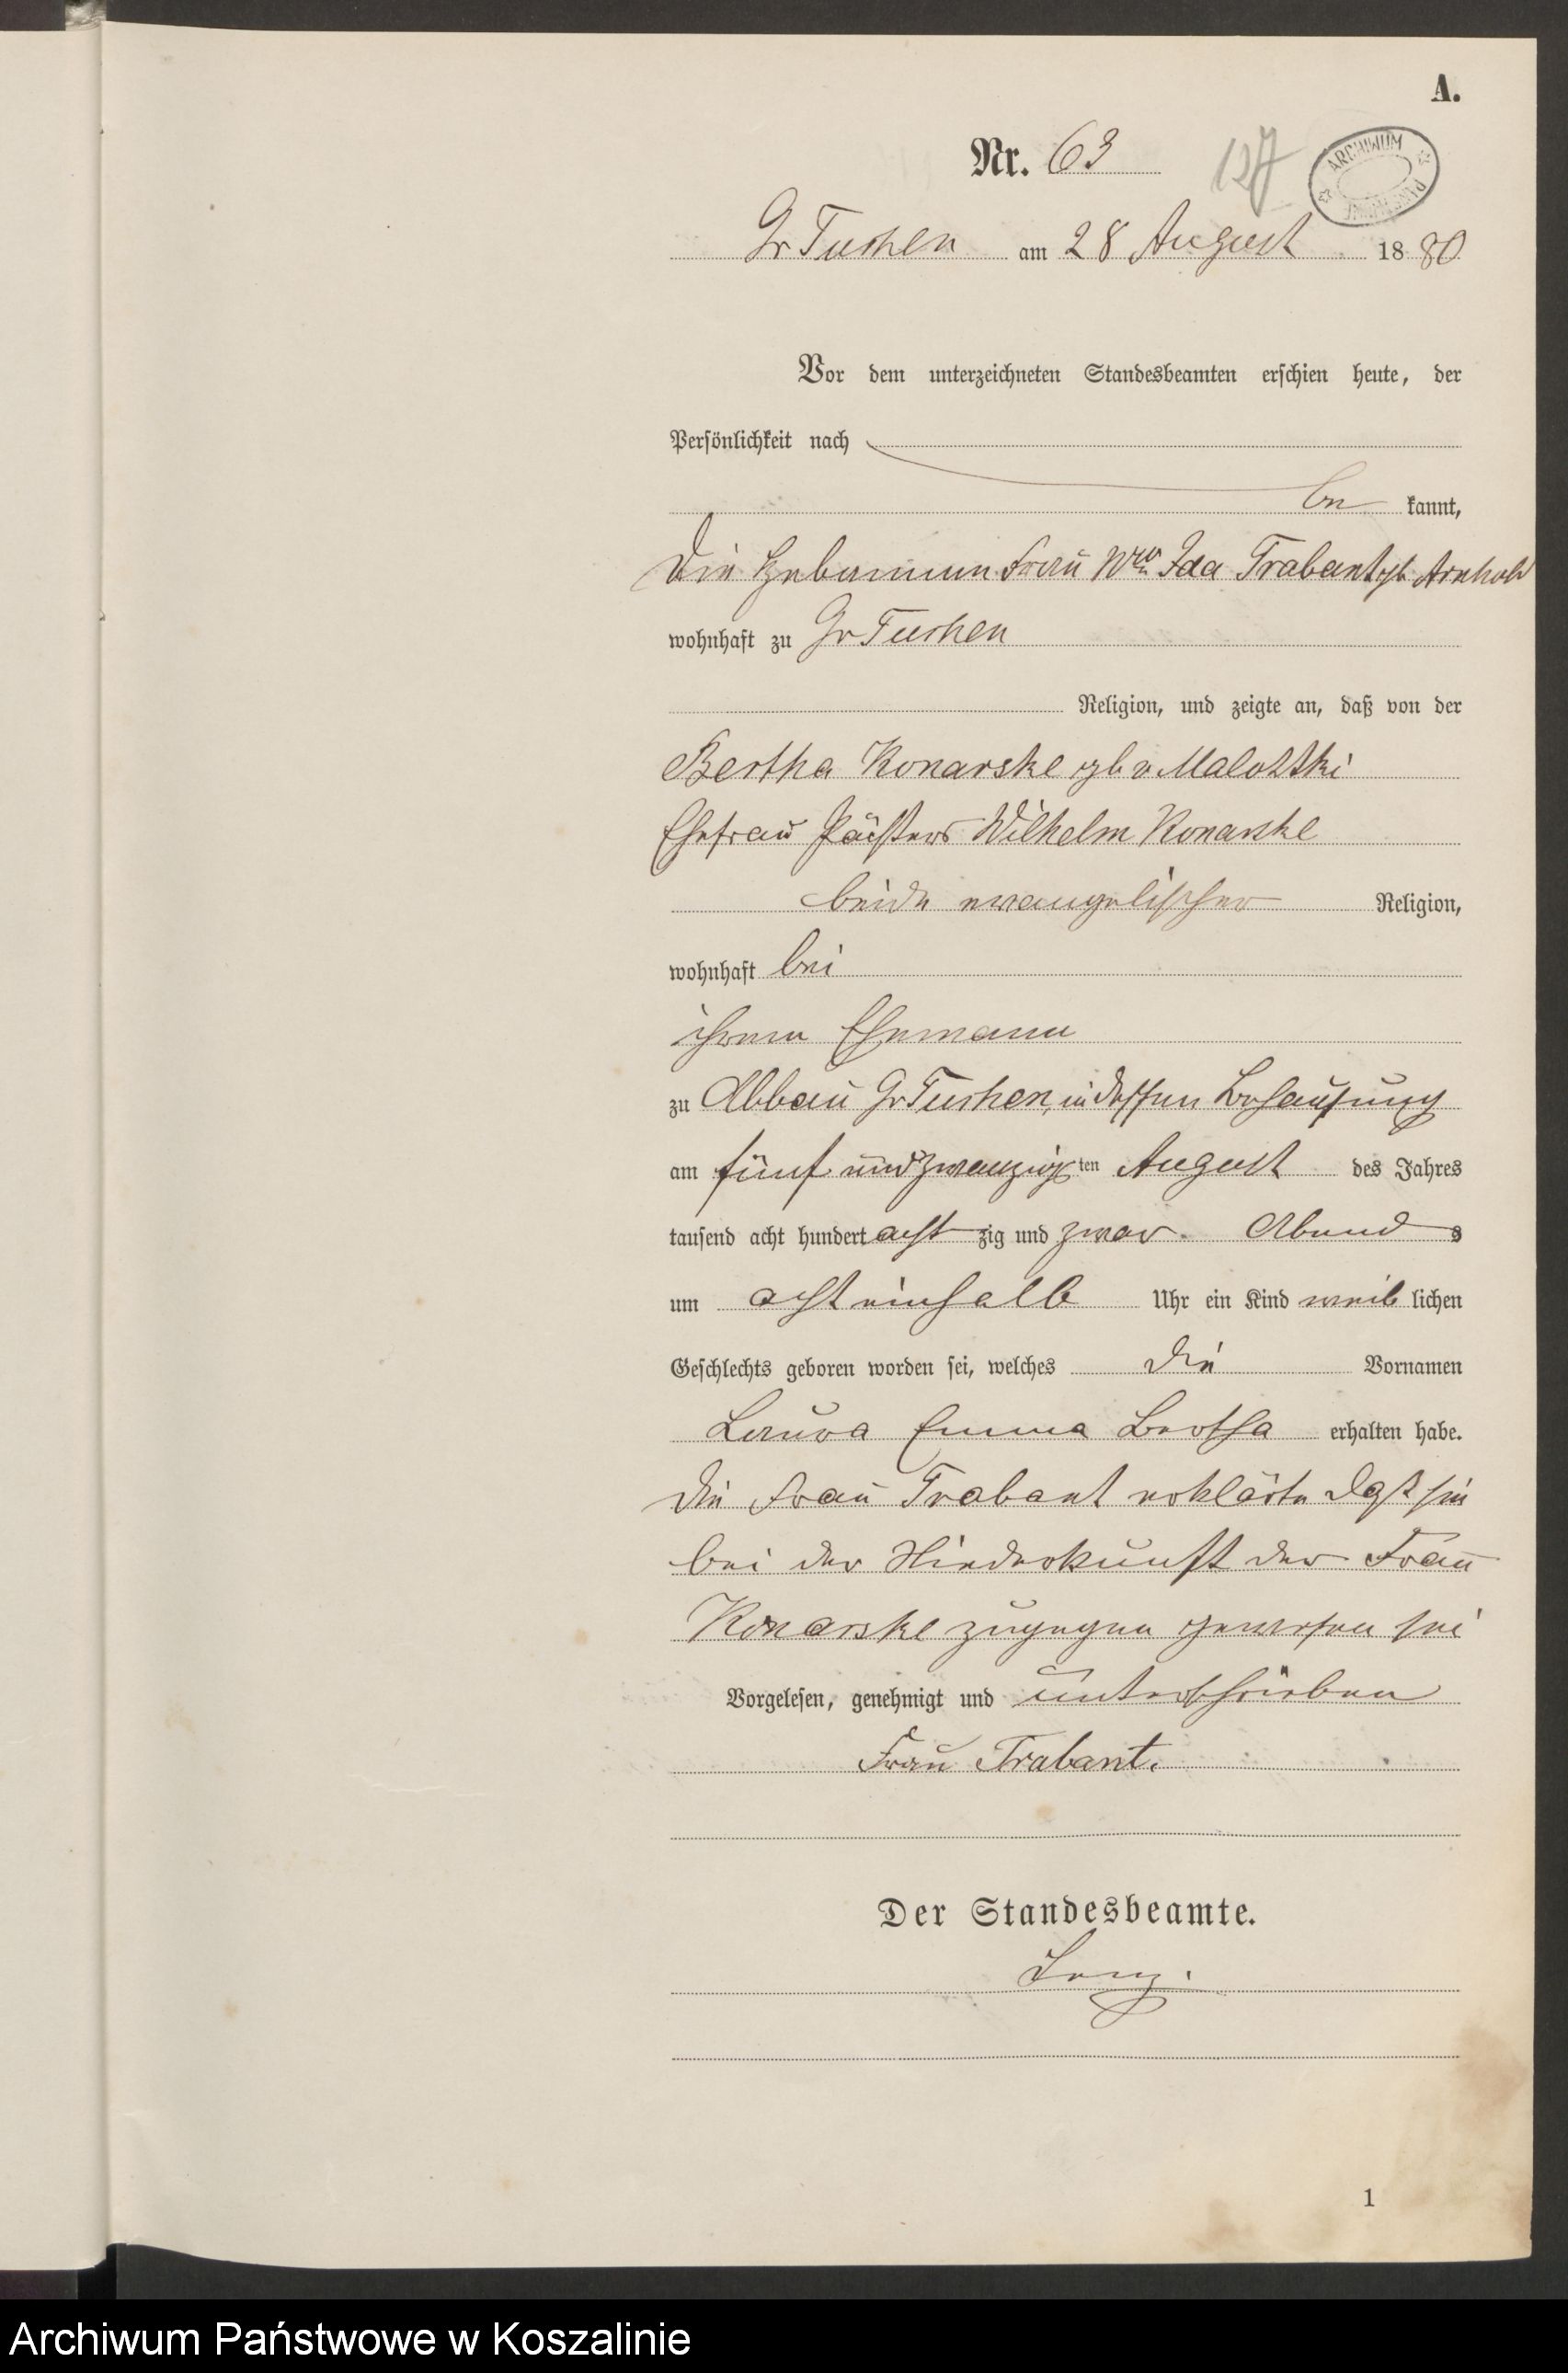 A.
Nr. 63
127
ARCHIWUM
Gr Tuchen am 28 August 1880
Vor dem unterzeichneten Standesbeamten erschien heute, der
Persönlichkeit nach
be kannt,
die Hebamme Frau Wwe Ida Trabant gb Arnhold
wohnhaft zu Gr Tuchen
Religion, und zeigte an, daß von der
Bertha Konarske gb v. Malottki
Ehefrau Pächters Wilhelm Konarske
beide evangelischer Religion,
wohnhaft bei
ihrem Ehemann
zu Abbau Gr Tuchen, in dessen Behausung
am fünf und zwanzigsten August des Jahres
tausend acht hundert acht zig und zwar Abends
um acht einhalb Uhr ein Kind weiblichen
Geschlechts geboren worden sei, welches die Vornamen
Laura Emma Bertha erhalten habe.
die Frau Trabant erklärte daß sie
bei der Niederkunft der Frau
Konarske zugegen gewesen sei
Vorgelesen, genehmigt und unterschrieben
Frau Trabant.
Der Standesbeamte.
Lenz.
1
Archiwum Państwowe w Koszalinie